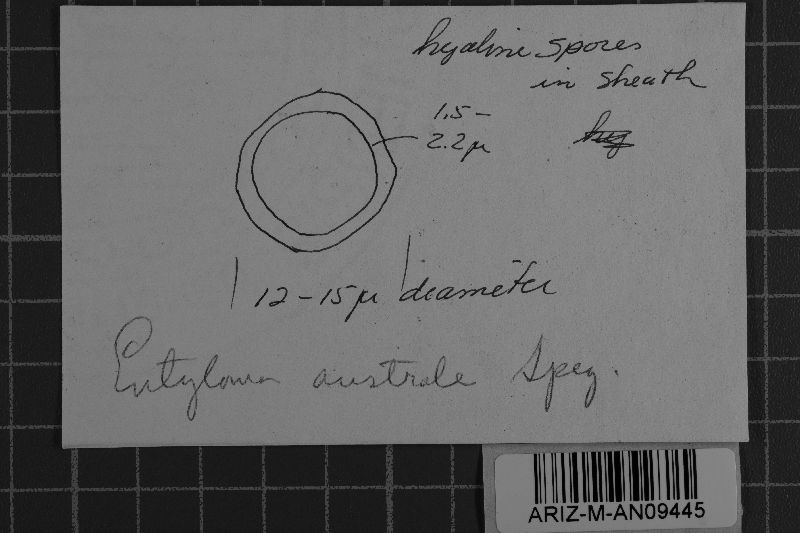 hyaline spores
in sheath
1.5 -
2.2 µ
12 - 15 µ diameter
Entyloma australe Speg.
ARIZ-M-AN09445